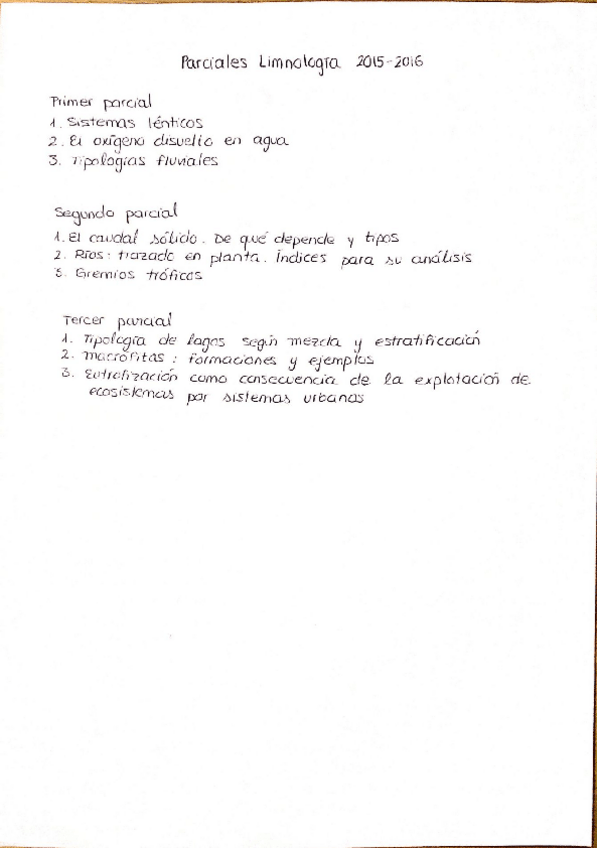 Parciales Limnología 2015-2016
Primer parcial
1. Sistemas lénticos
2. El oxígeno disuelto en agua
3. Tipologías fluviales
Segundo parcial
1. El caudal sólido. De qué depende y tipos
2. Ríos: trazado en planta. Índices para su análisis
3. Gremios tróficos
Tercer parcial
1. Tipología de lagos según mezcla y estratificación
2. Macrófitas: formaciones y ejemplos
3. Eutrofización como consecuencia de la explotación de
ecosistemas por sistemas urbanos